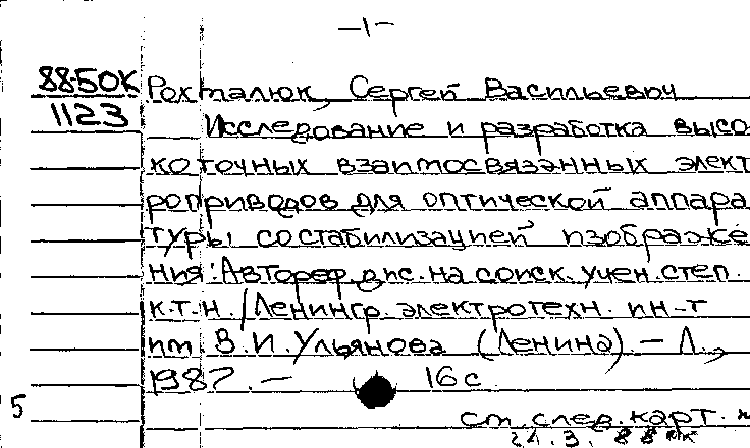 —1—
88-50К Рохталюк, Сергей Васильевич
1123
Исследование и разработка высо
коточных взаимосвязанных элект
роприводов для оптической аппара
туры со стабилизацией изображе
ния: Автореф. дис. на соиск. учен. степ.
к.т.н. / Ленингр. электротехн. ин-т
им. В. И. Ульянова (Ленина). — Л.,
1987. — 16 с.
5
см. след. карт.
24.3.88